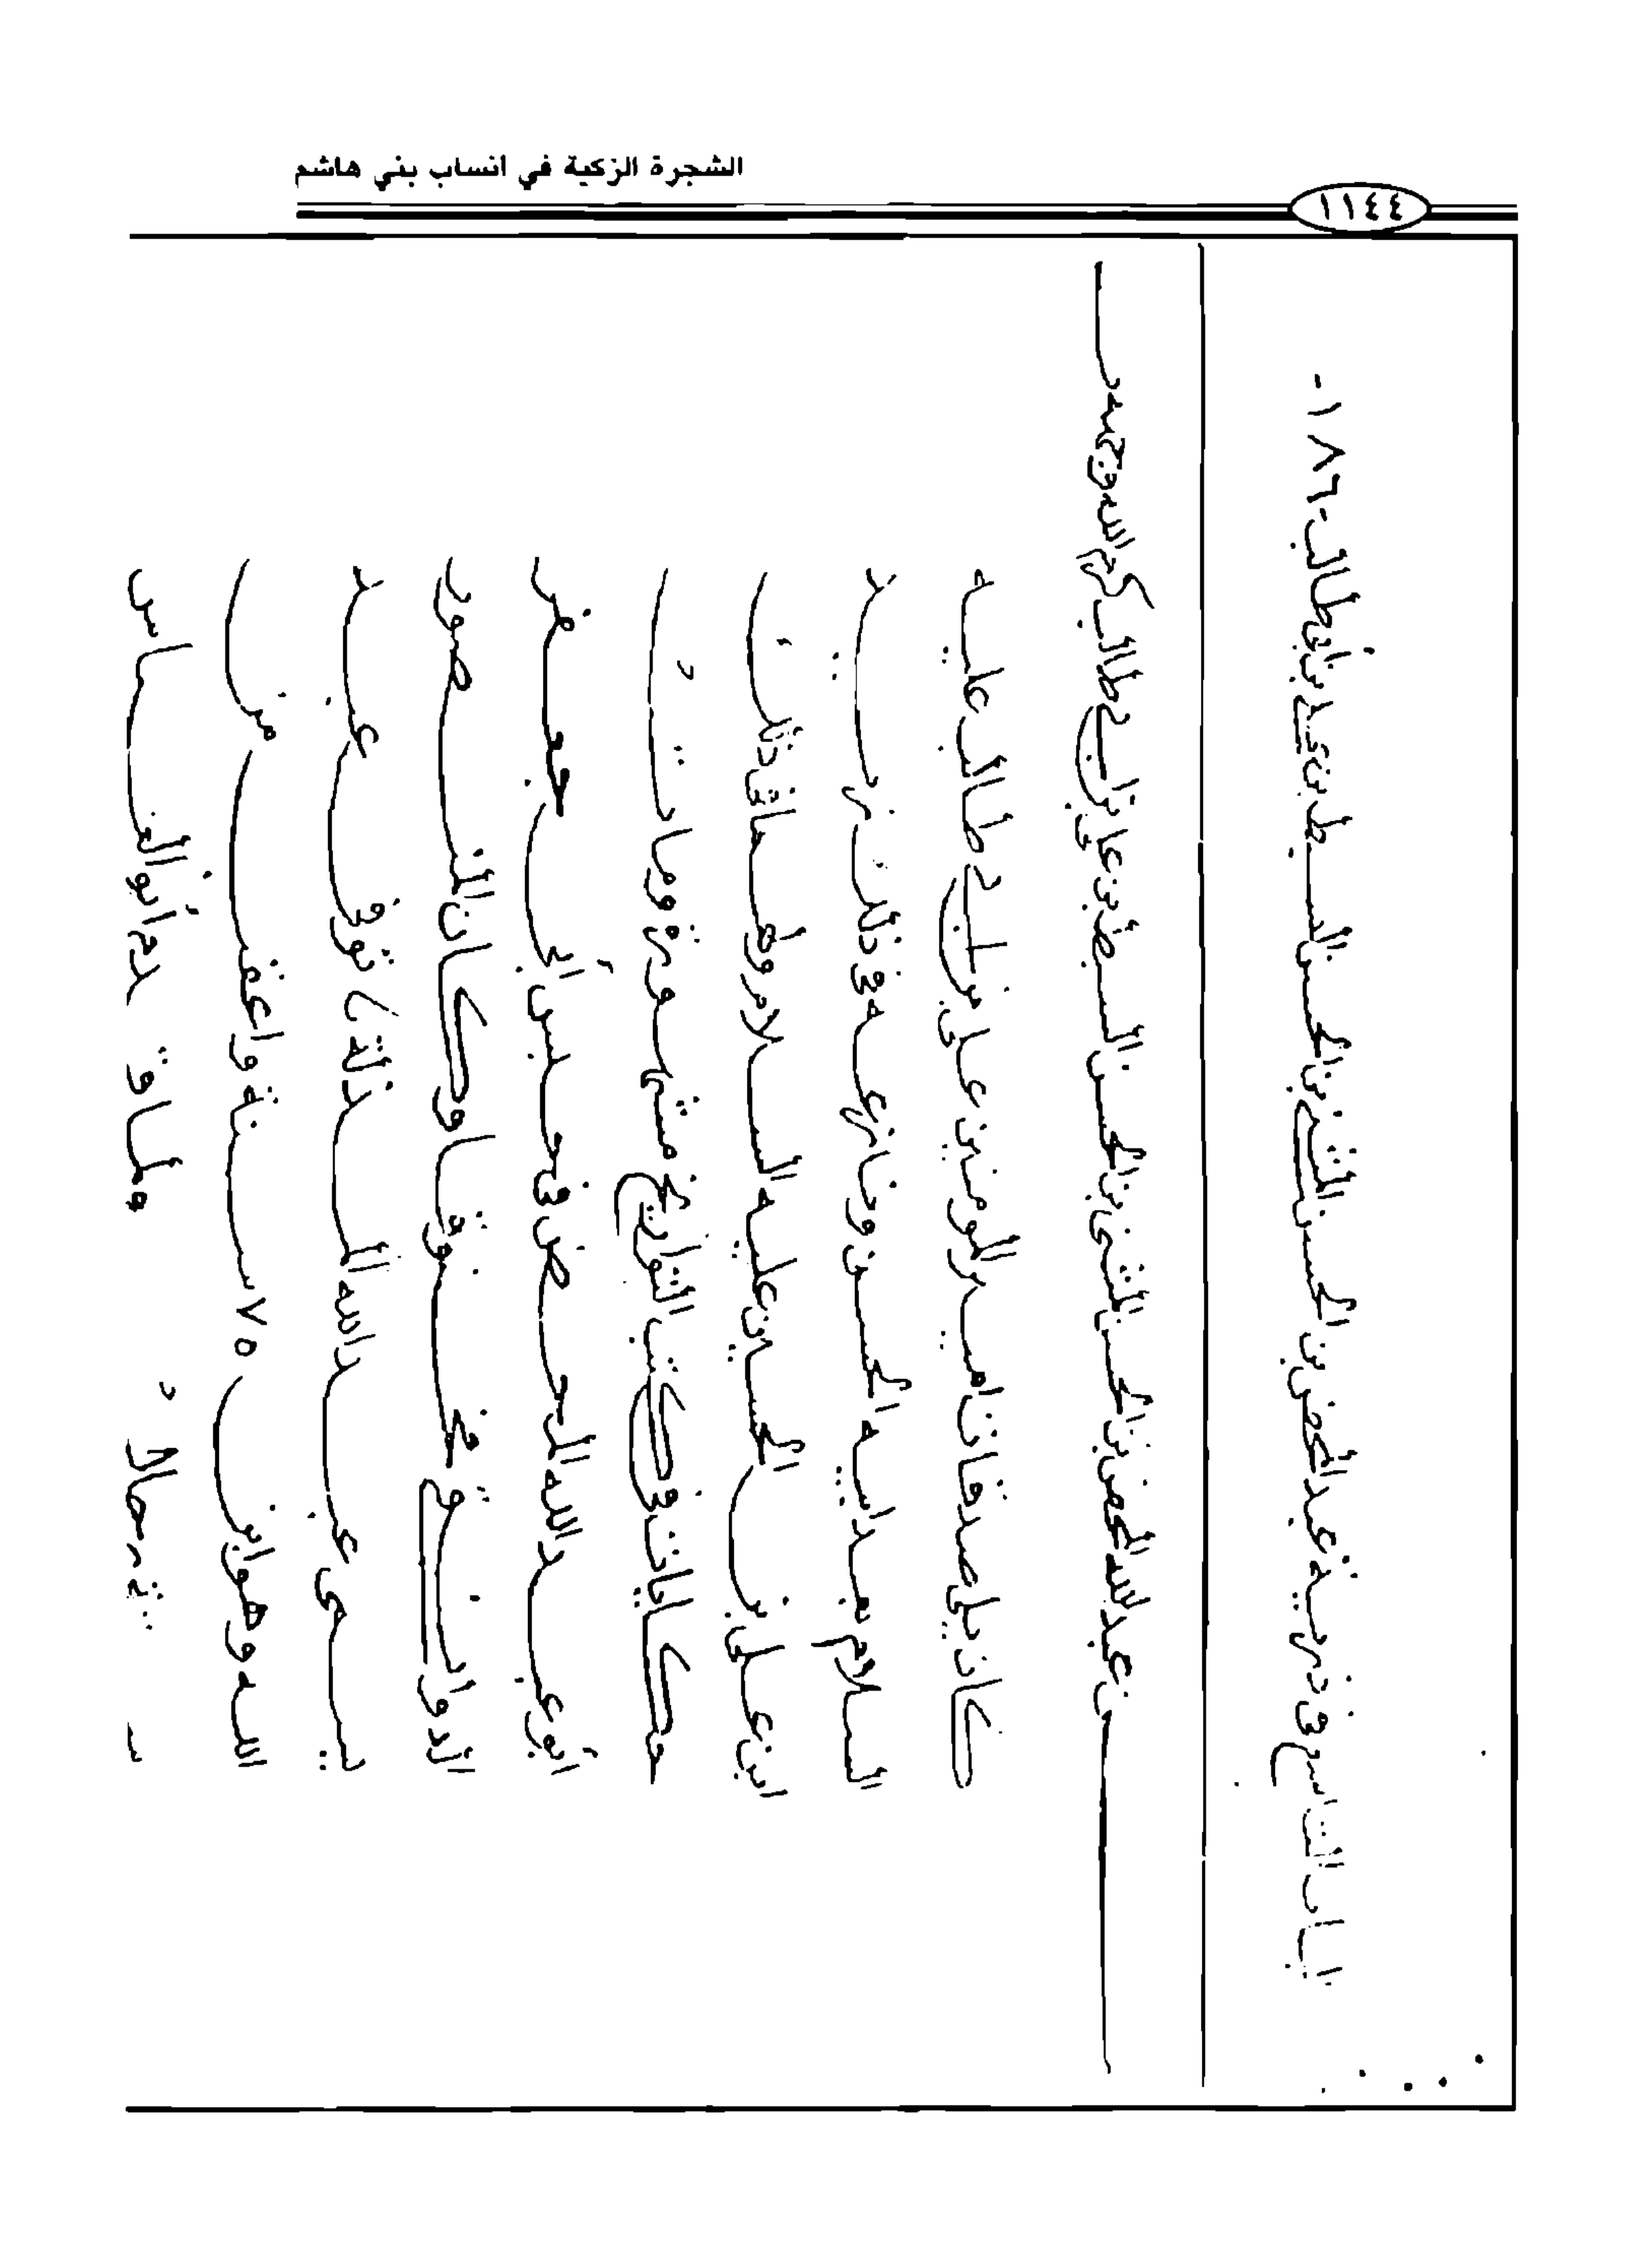 الشجرة الزكية في انساب بني هاشم
١١٤٤
الباب التاسع في ذرية عبد المحض بن الحسن المثنى بن الحسن السبط بن علي بن أبي طالب -١٨٦-
عبد الله المحض بن الحسن المثنى بن الحسن السبط بن علي بن أبي طالب كرم الله وجهه
كان يلي صدقات امير المومنين علي بن ابي طالب عليه
السلام بعد ابيه الحسن ونازعه في ذلك زيد
ابن علي بن الحسين عليه السلام ولهما في ذلك
حكايات في كتب التواريخ مشهورة ومات
أبو عبد الله المحض في حبس أبي جعفر
الدوانيقي مخنوقا وكان المنصور
يسمى عبد الله المذلة توفي عبد
الله وهو ابن ٧٥ سنة واعقب من